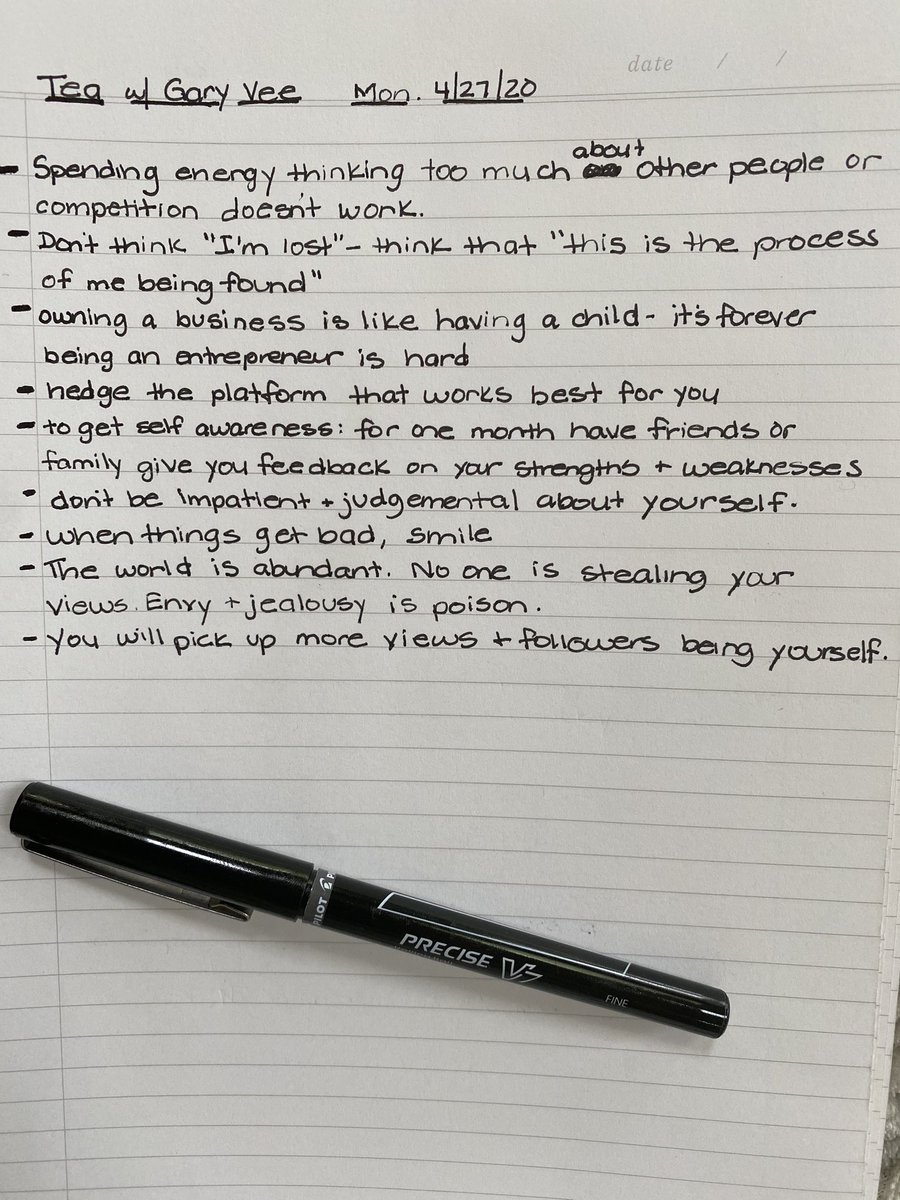 date / /
Tea w/ Gary Vee Mon. 4/27/20
- Spending energy thinking too much about other people or
competition doesn't work.
- Don't think "I'm lost" - think that "this is the process
of me being found"
- owning a business is like having a child - it's forever
being an entrepreneur is hard
- hedge the platform that works best for you
- to get self awareness: for one month have friends or
family give you feedback on your strengths + weaknesses
- don't be impatient + judgemental about yourself.
- when things get bad, smile
- The world is abundant. No one is stealing your
views. Envy + jealousy is poison.
- you will pick up more views + followers being yourself.
PILOT
PRECISE V7
FINE